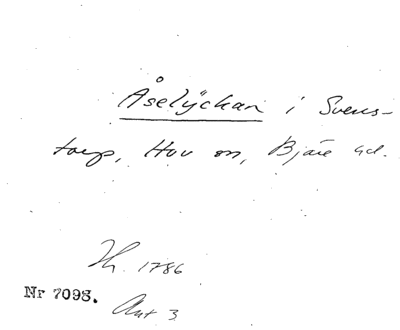 Åselÿckan i Svens-
torp, Hov sn, Bjäre hd.
Th. 1786
Nr 7098.
Akt 3